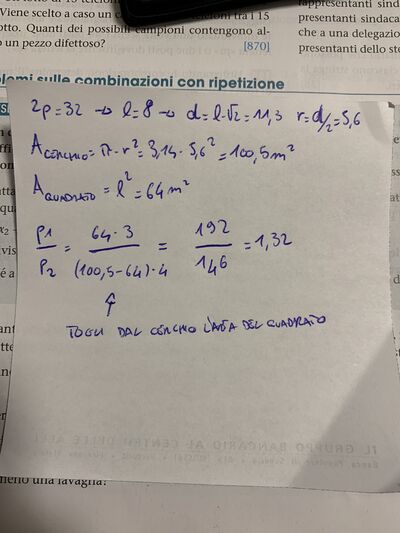 Viene scelto a caso un c
tra i 15
otto. Quanti dei possibili campioni contengono al-
o un pezzo difettoso?
[870]
rappresentanti sinda
presentanti sindaca
che a una delegazio
presentanti dello ste
sulle combinazioni con ripetizione
2p=32 → l=8 → d=l·√2=11,3 r=d/2=5,6
A CERCHIO = π·r²=3,14·5,6²=100,5m²
A QUADRATO = l² = 64m²
P1/P2 = 64·3/(100,5-64)·4 = 192/146 = 1,32
↑
TOGLI DAL CERCHIO L'AREA DEL QUADRATO
IL GRUPPO BANCARIO AL CENTRO DELLE
meno una lavagna?